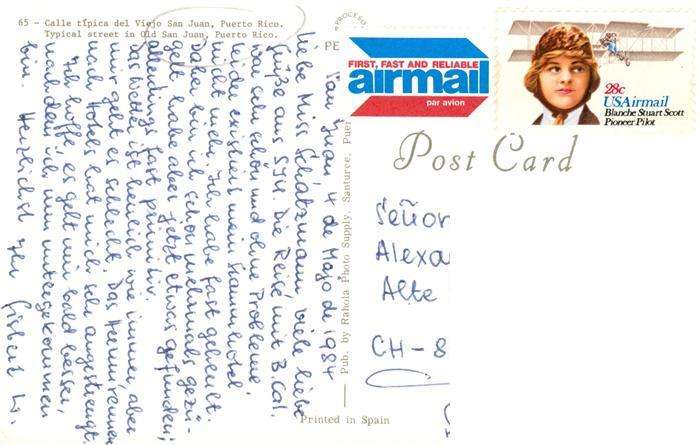 65 - Calle típica del Viejo San Juan, Puerto Rico.
Typical street in Old San Juan, Puerto Rico.
San Juan 4 de Majo de 1984
liebe Miss Schätzmann, viele liebe
Grüße aus SJU. Die Reise mit B.Cal.
war sehr schön und ohne Probleme.
leider existiert mein Stammhotel
nicht mehr. Ich habe fast geheult.
Daher bin ich schon mehrmals gezü-
gelt, habe aber jetzt etwas gefunden;
allerdings fast primitiv.
Das Wetter ist herrlich wie immer, aber
mir geht es schlecht. Das Herumrennen
nach Hotels hat mich sehr angestrengt.
Ich hoffe, es geht mir bald besser,
nachdem ich nun untergekommen
bin. Herzlichst Ihr Gisbert W.
Pub. by Rahola Photo Supply, Santurce, Puer
PROCESO
PE
FIRST, FAST AND RELIABLE
airmail
par avion
28c
USAirmail
Blanche Stuart Scott
Pioneer Pilot
Post Card
Señor
Alexa
Alte
CH-8
Printed in Spain